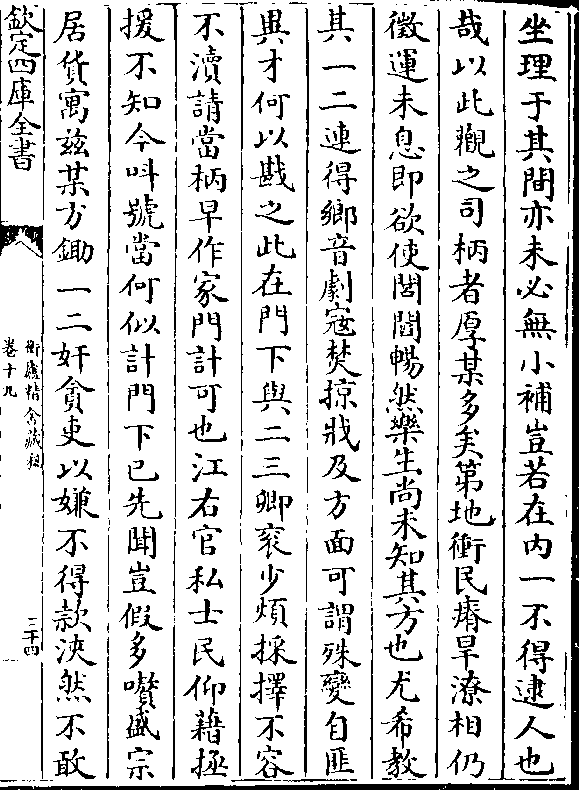 坐理于其間亦未必無小補豈若在内一不得逮人也
哉以此觀之司柄者厚某多矣第地衝民瘠旱潦相仍
徵運未息即欲使閭閻暢然樂生尚未知其方也尤希教
其一二連得鄉音劇寇焚掠戕及方面可謂殊變自匪
異才何以戡之此在門下與二三卿衮少煩採擇不容
不瀆請當柄早作家門計可也江右官私士民仰藉拯
援不知今呌號當何似計門下已先聞豈假多囋盛宗
居貨寓兹某方鋤一二奸貪吏以嫌不得款浹然不敢
欽定四庫全書
衡廬精舍藏稿
卷十九
三十四